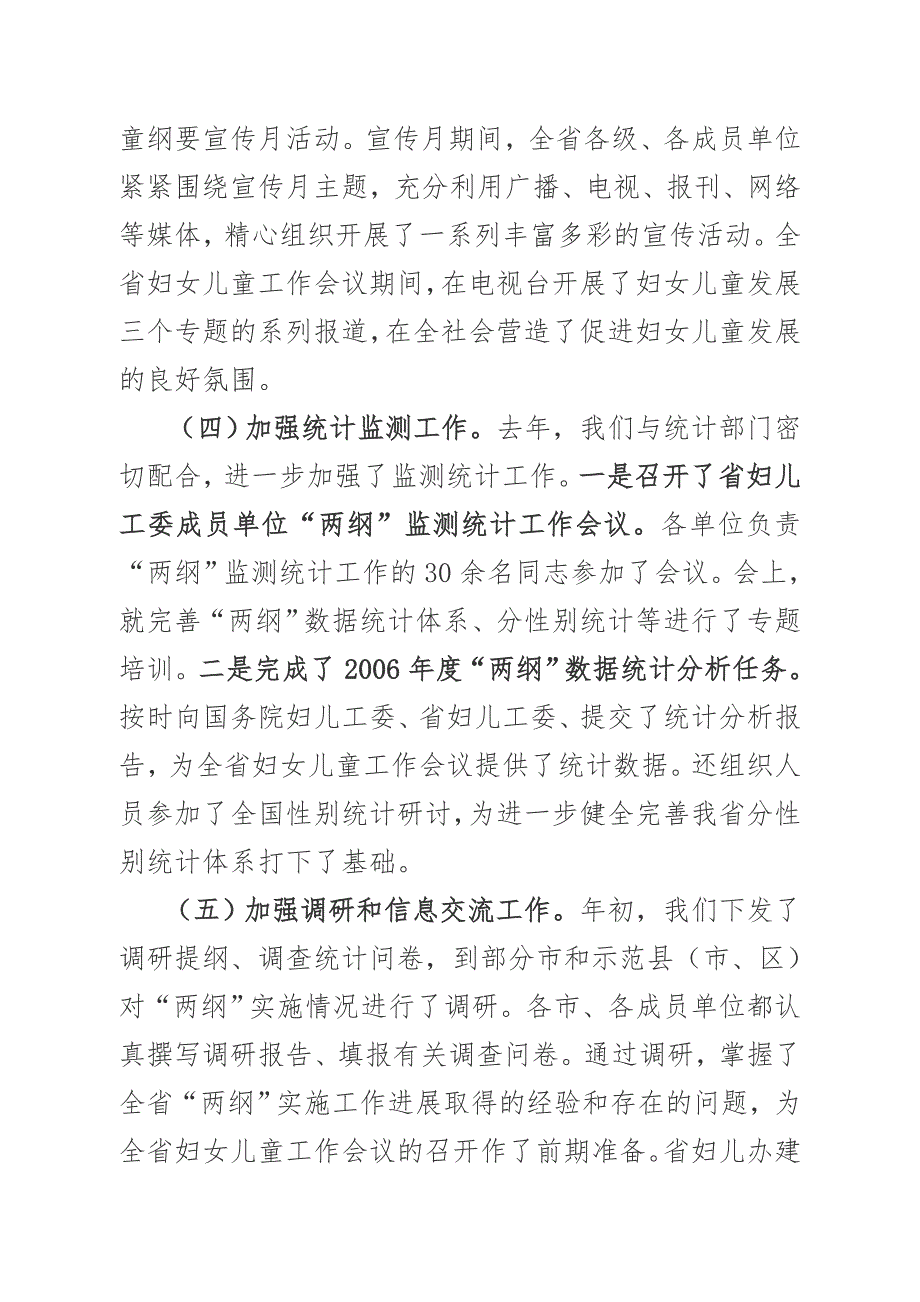 童纲要宣传月活动。宣传月期间，全省各级、各成员单位
紧紧围绕宣传月主题，充分利用广播、电视、报刊、网络
等媒体，精心组织开展了一系列丰富多彩的宣传活动。全
省妇女儿童工作会议期间，在电视台开展了妇女儿童发展
三个专题的系列报道，在全社会营造了促进妇女儿童发展
的良好氛围。
（四）加强统计监测工作。去年，我们与统计部门密
切配合，进一步加强了监测统计工作。一是召开了省妇儿
工委成员单位“两纲”监测统计工作会议。各单位负责
“两纲”监测统计工作的 30 余名同志参加了会议。会上，
就完善“两纲”数据统计体系、分性别统计等进行了专题
培训。二是完成了 2006 年度“两纲”数据统计分析任务。
按时向国务院妇儿工委、省妇儿工委、提交了统计分析报
告，为全省妇女儿童工作会议提供了统计数据。还组织人
员参加了全国性别统计研讨，为进一步健全完善我省分性
别统计体系打下了基础。
（五）加强调研和信息交流工作。年初，我们下发了
调研提纲、调查统计问卷，到部分市和示范县（市、区）
对“两纲”实施情况进行了调研。各市、各成员单位都认
真撰写调研报告、填报有关调查问卷。通过调研，掌握了
全省“两纲”实施工作进展取得的经验和存在的问题，为
全省妇女儿童工作会议的召开作了前期准备。省妇儿办建